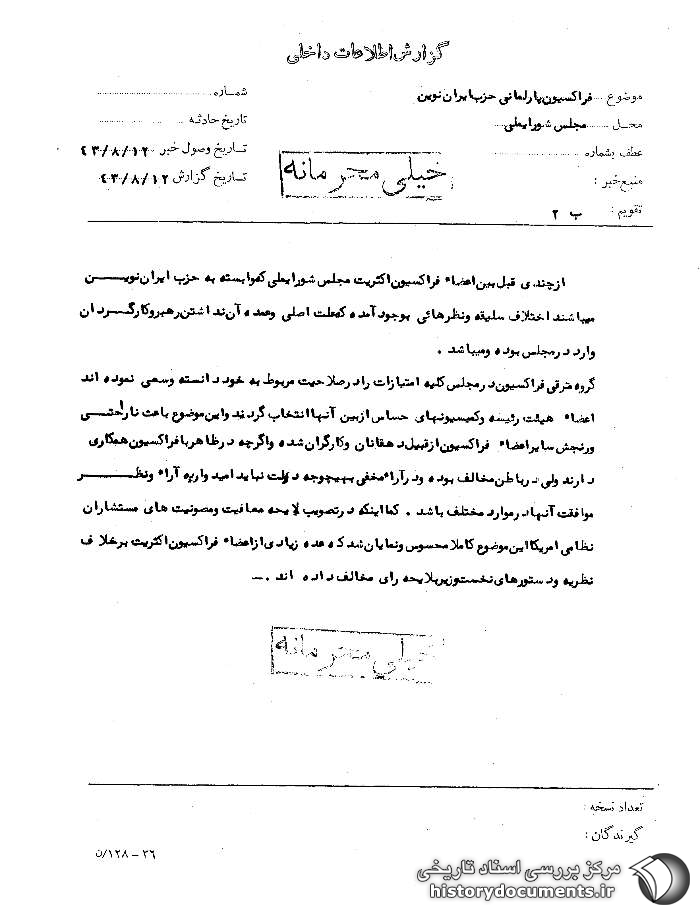 گزارش اطلاعات داخلی
موضوع ... فراکسیون پارلمانی حزب ایران نوین
شماره
محل ... مجلس شورایملی
تاریخ حادثه
عطف بشماره
تاریخ وصول خبر ۴۳/۸/۱۲
منبع خبر :
تاریخ گزارش ۴۳/۸/۱۲
تقویم : ب ۲
خیلی محرمانه
از چندی قبل بین اعضاء فراکسیون اکثریت مجلس شورایملی که وابسته به حزب ایران نوین
میباشند اختلاف سلیقه و نظرهائی بوجود آمده که علت اصلی و عمده آن نداشتن رهبر و کارگردان
وارد در مجلس بوده و میباشد .
گروه مترقی فراکسیون در مجلس کلیه امتیازات را در صلاحیت مربوط به خود دانسته و سعی نموده اند
اعضاء هیئت رئیسه و کمیسیونهای حساس از بین آنها انتخاب گردند و این موضوع باعث ناراحتی
و رنجش سایر اعضاء فراکسیون از قبیل دهقانان و کارگران شده و اگرچه در ظاهر با فراکسیون همکاری
دارند ولی در باطن مخالف بوده و در آراء مخفی بهیچوجه دولت نباید امیدوار به آراء و نظر
موافقت آنها در موارد مختلف باشد . کما اینکه در تصویب لایحه معافیت و مصونیت های مستشاران
نظامی امریکا این موضوع کاملا محسوس و نمایان شد که عده زیادی از اعضاء فراکسیون اکثریت برخلاف
نظریه و دستورهای نخست وزیر بلایحه رای مخالف داده اند .ـ
خیلی محرمانه
تعداد نسخه :
گیرندگان :
۳۶ - ۱۲۸/ن
مرکز بررسی اسناد تاریخی
historydocuments.ir